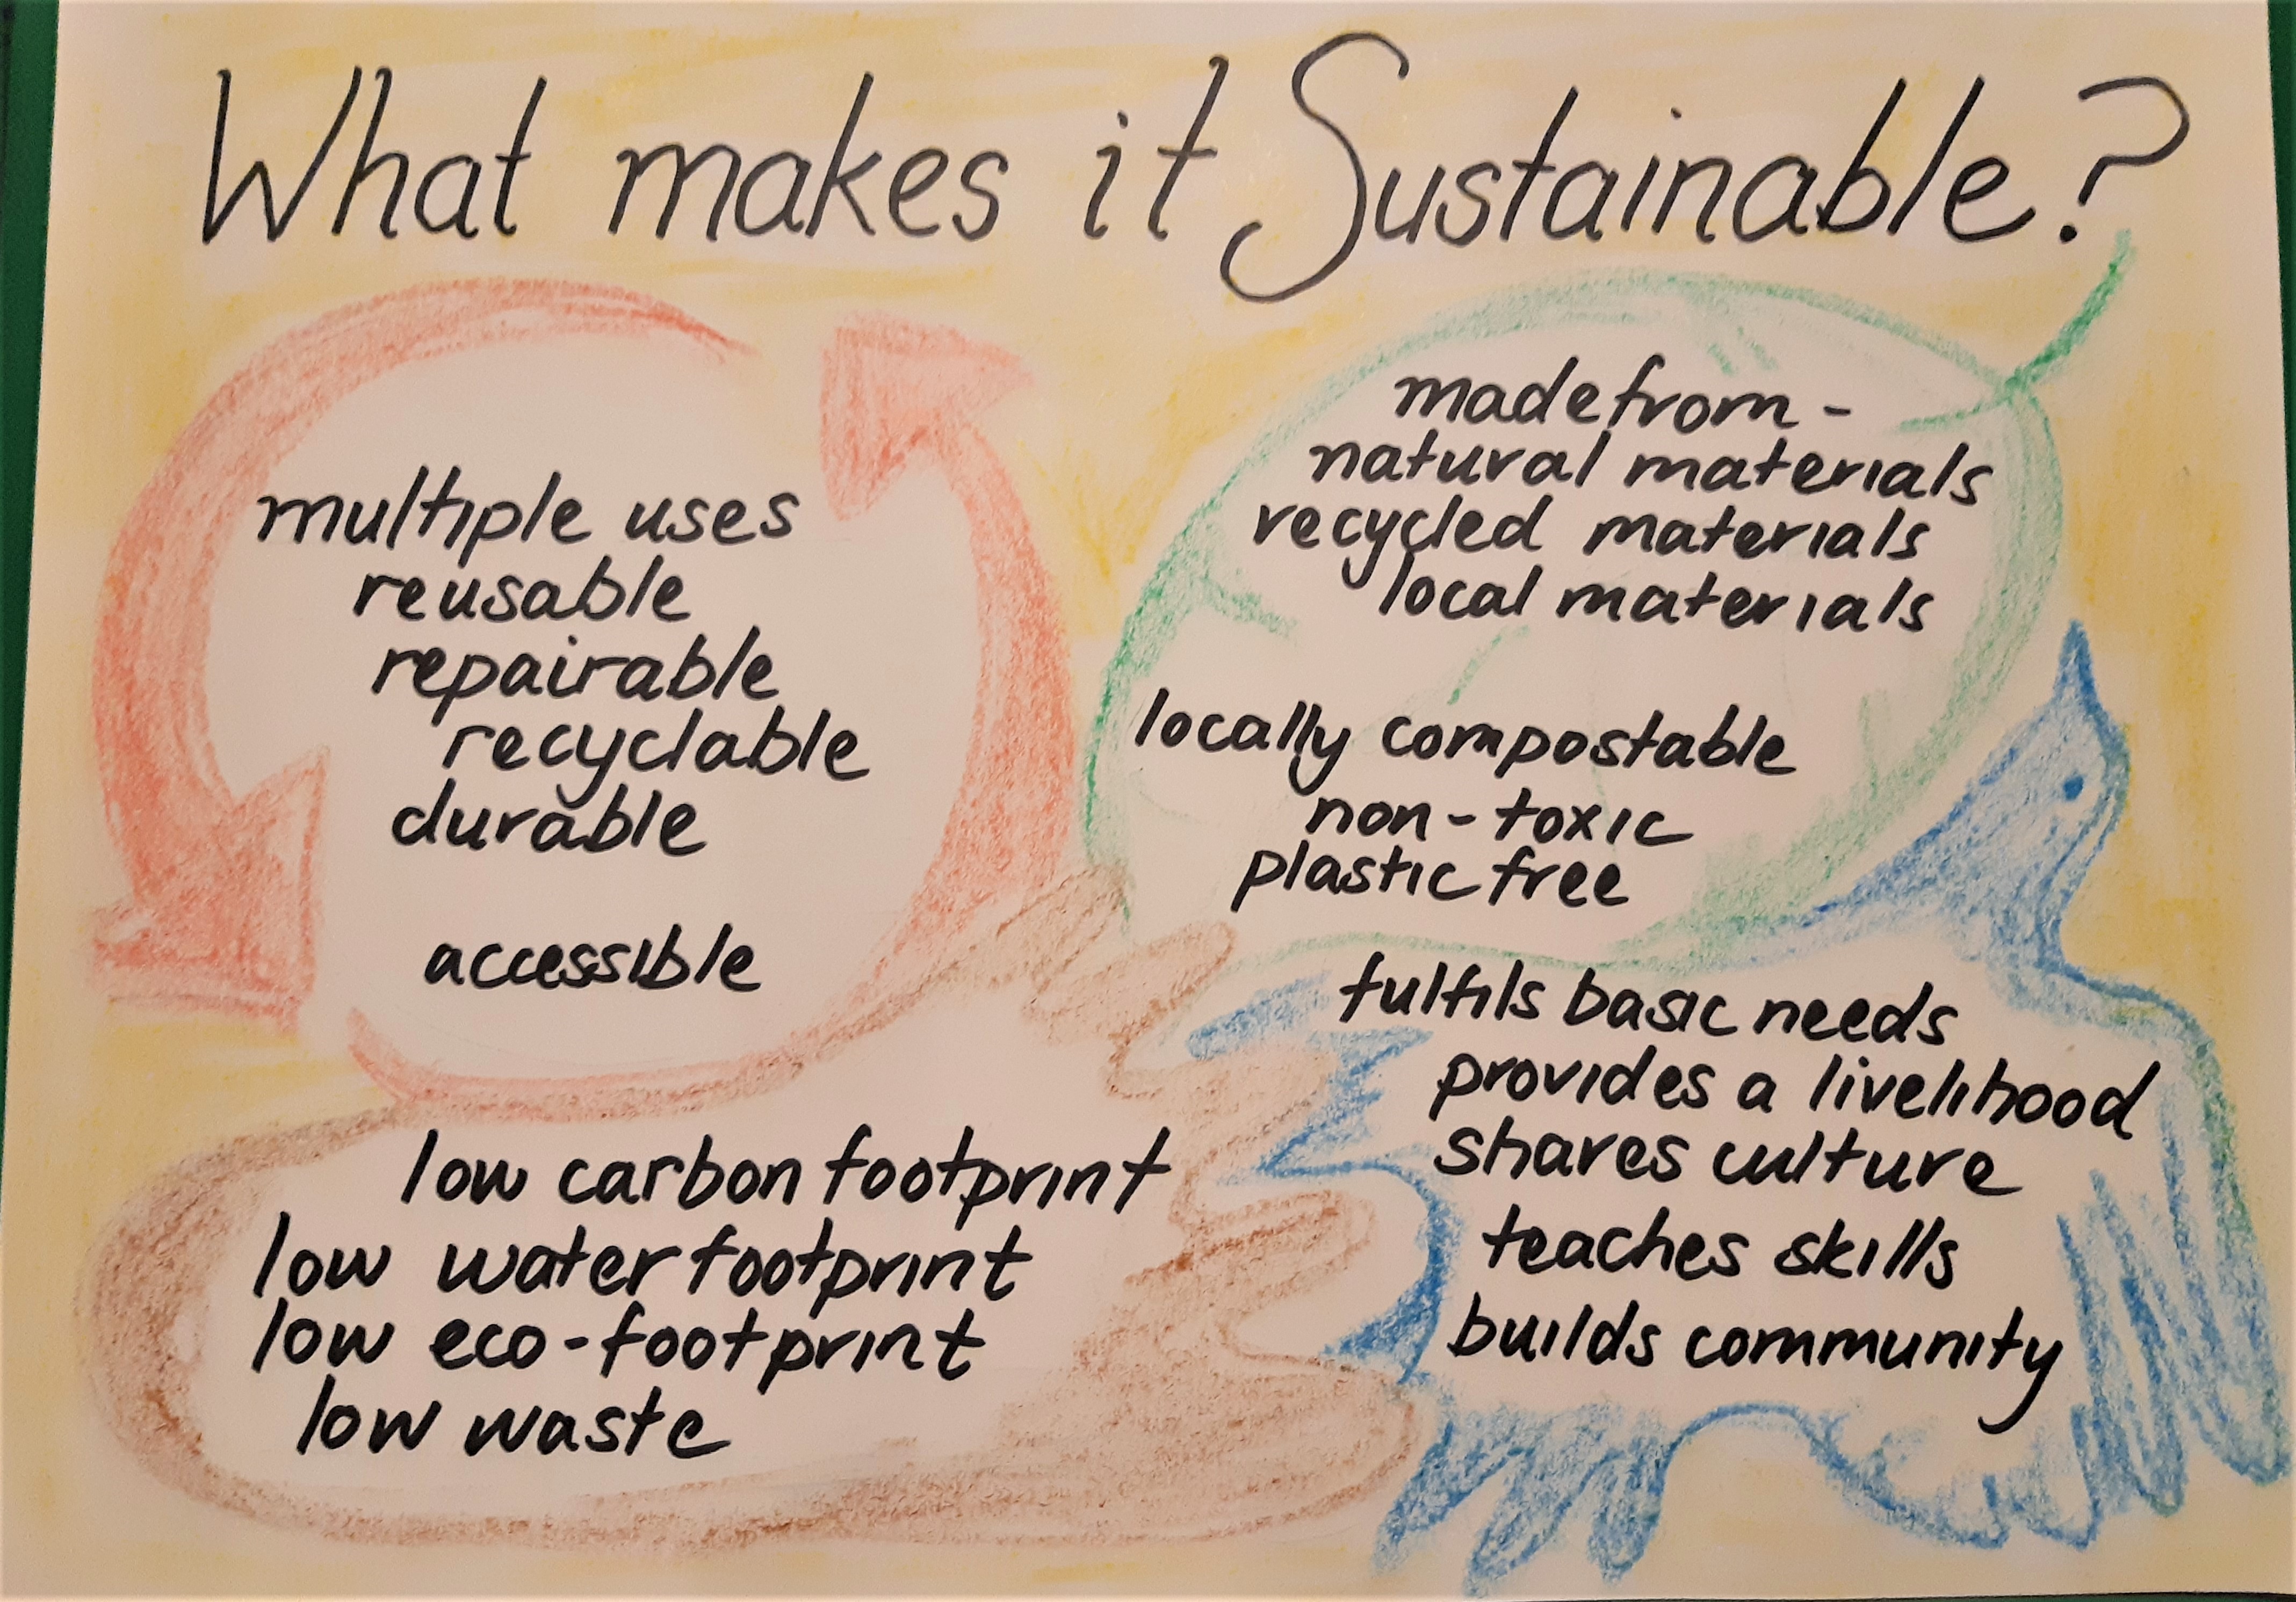 What makes it Sustainable?
multiple uses
reusable
repairable
recyclable
durable
accessible
made from -
natural materials
recycled materials
local materials
locally compostable
non-toxic
plastic free
low carbon footprint
low water footprint
low eco-footprint
low waste
fulfils basic needs
provides a livelihood
shares culture
teaches skills
builds community